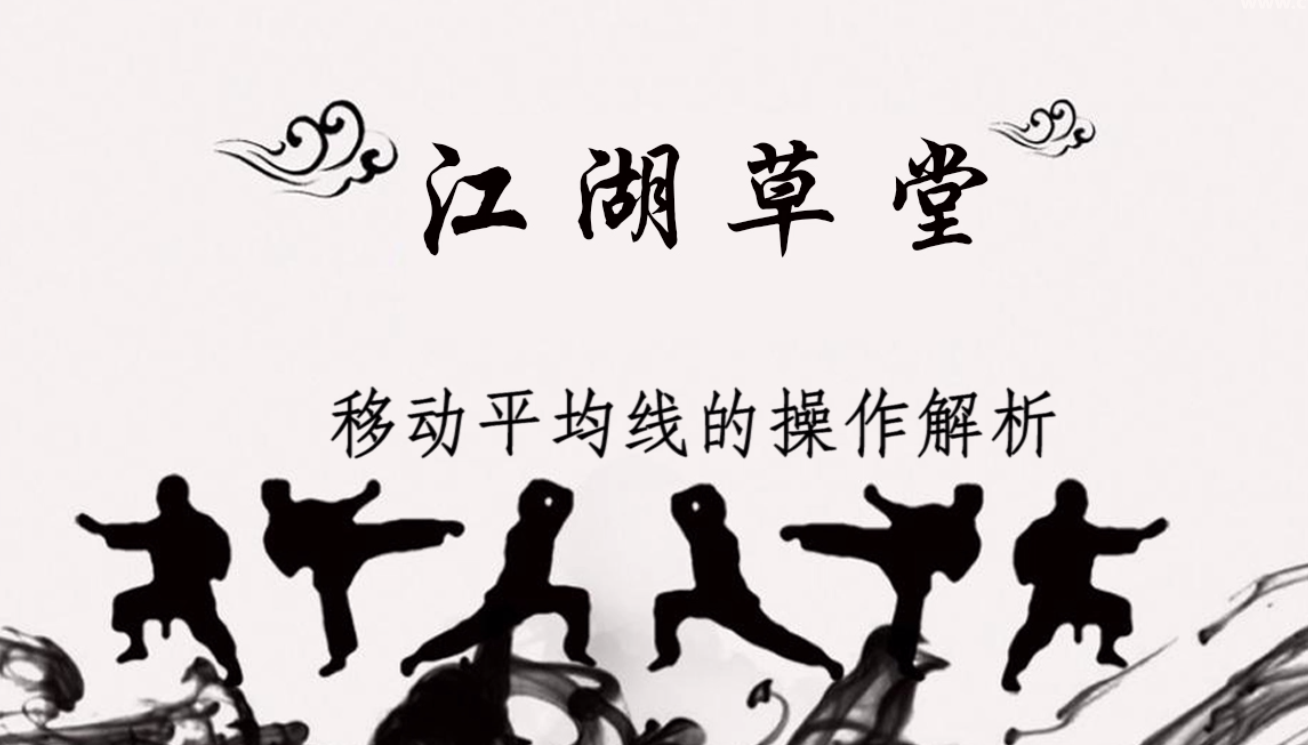 江湖草堂
移动平均线的操作解析